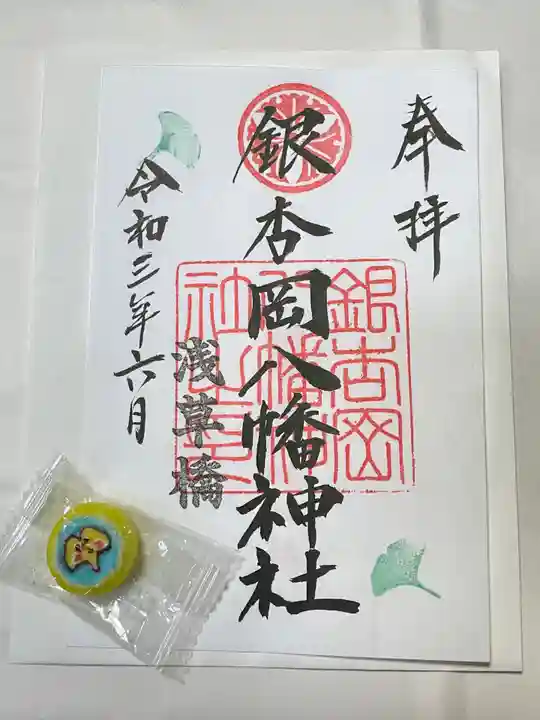 奉拝
銀杏岡八幡神社
銀杏岡
八幡神
社之印
浅草橋
令和三年六月